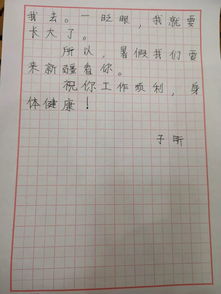 我去。一眨眼，我就要
长大了。
所以，暑假我们要
来新疆看你。
祝你工作顺利，身
体健康！
子昕